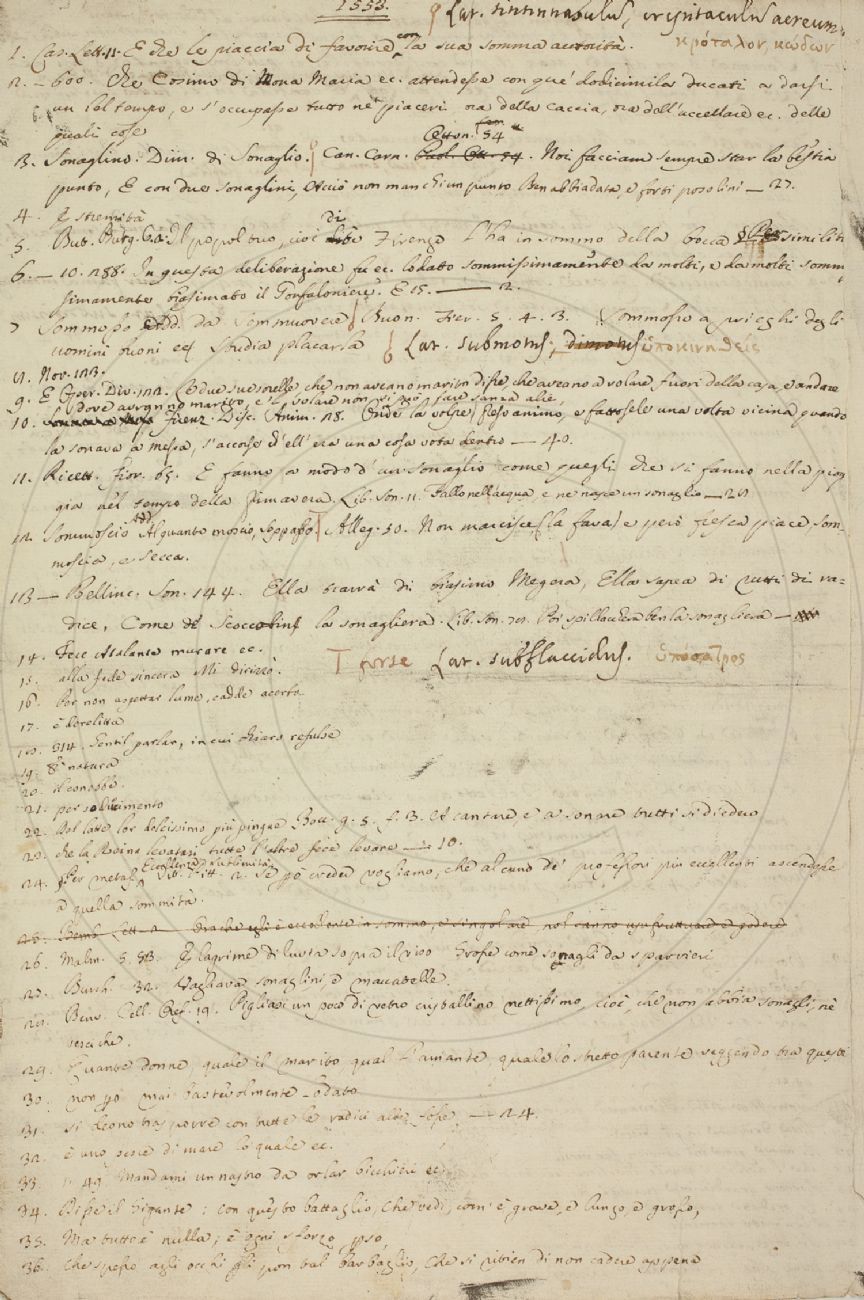 1553.
Lat. tintinnabulus, crepitaculus aereum.
κρόταλον, κώδων
1. Cas. Lett. 11. E che le piaccia di favorire con la sua somma autorità.
2. — 600. Che Cosimo di Mona Maria ec. attendesse con que' dodicimila ducati a darsi
un bel tempo, e s'occupasse tutto ne' piaceri ora della caccia, ora dell'uccellare ec. delle
quali cose
3. Sonaglino. Dim. di Sonaglio. Can. Carn. Paol. Ott. 54. Noi facciam sempre star la bestia
punto, E con due sonaglini, Acciò non manchi un punto Ben abbiadata, e forti posolini — 27.
4. Estremità
5. But. Purg. 6. 2. Il popol tuo, cioè di Firenze l'ha in sommo della bocca similit
6. — 10. 188. In questa deliberazione fu ec. lodato sommissimamente da molti, e da molti somm-
simamente biasimato il Gonfaloniere. E 15. — 2.
7 Sommosso Add. da Sommuovere Buon. Fier. 5. 4. 3. Sommosso a prieghi degli
uomini buoni ec. studia placarla Lat. submotus, dimotus ὑποκινηθείς
8. Nov. 113.
9. E Oper. Div. Le due sue sorelle che non aveano marito disse che aveano a volare fuori della casa, e andare
dove avrann marito, e se volare non si può fare sanza alie,
10. Firenz. Disc. Anim. 18. Onde la volpe preso animo, e fattosele una volta vicina quando
la sonava a messa, s'accorse ch'ell'era una cosa vota dentro — 40.
11. Ricett. Fior. 65. E fanno a modo d'un sonaglio come quegli che si fanno nella piog
gia nel tempo della Primavera. Lib. Son. 11. Fallo nell'acqua, e ne nasce un sonaglio — 28
12. Sommoscio Add. Alquanto moscio, Soppasso Alleg. 50. Non marcisce (la fava) e però fresca piace, Som-
moscia, e secca.
13 — Bellinc. Son. 144. Ella scarrà di biasimo Megera, Ella sapea di tutti di ra-
dice, Come gli Scoccolini la sonagliera. Lib. Son. 71. Poi spillacchera ben la sonagliera —
14. Fece Atalante murare ec.
forse Lat. subflaccidus.
15. alla fede sincera Mi dirizzò.
16. Por non aspettar lume, cadde acerba
17. è derelitta
18. 314. Gentil parlar, in cui chiaro refulse
19. 8a natura
20. il conobbe.
21. per seducimento
22. Dal latte lor dolcissimo più pingue Bocc. g. 5. f. 3. A cantare, e a sonare tutti si diedero
23. che la Reina levatasi tutte l'altre fece levare — 10.
24. Per metaf. Eccellenza, Sublimità. Vit. Pitt. 2. Se pò creder vogliamo, che alcuno de' professori più eccellenti ascendesse
a quella sommità.
25. Bemb. Lett. 2 Perchè egli è eccellente in sommo, e singolare nol sanno usufruttuare e godere
26. Malm. 5. 53. E lagrime diluvia sopra il viso Grosse come sonagli da sparvieri
27. Burch. 32. Vagliava sonaglini e maccatelle.
28. Benv. Cell. Oref. 19. Pigliasi un poco di vetro cristallino nettissimo, cioè che non abbia sonagli, nè
vesciche.
29. Quante donne, quale il marito qual l'amante quale lo stretto parente veggendo tra questi
30. non pò mai bastevolmente lodato
31. Si deono trasporre con tutte le radici altre fosse — 24.
32. è uno pesce di mare lo quale ec.
33. 1. 49. Mandami un nastro da orlar bicchieri ec.
34. Disse il Gigante: con questo battaglio, che vedi, com'è grave, e lungo, e grosso,
35. Ma tutto è nulla, è ogni sforzo pso,
36. Che spesso agli occhi gli pon tal barbaglio, Che si ritien di non cadere appena